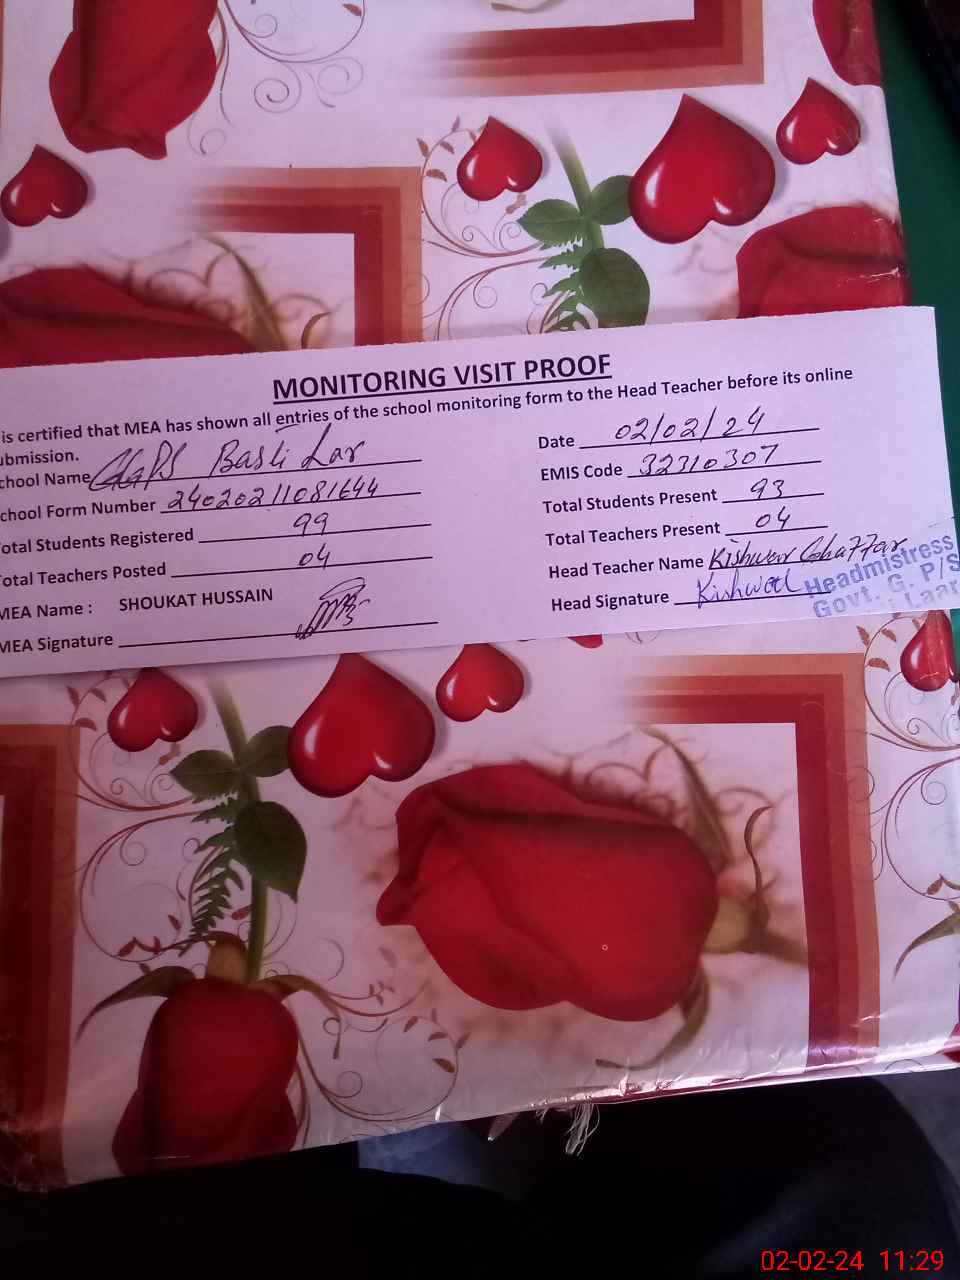 MONITORING VISIT PROOF
is certified that MEA has shown all entries of the school monitoring form to the Head Teacher before its online
ubmission.
chool Name GGPS Basti Lar
chool Form Number 24020211081644
otal Students Registered 99
otal Teachers Posted 04
MEA Name : SHOUKAT HUSSAIN
MEA Signature
Date 02/02/24
EMIS Code 32310307
Total Students Present 93
Total Teachers Present 04
Head Teacher Name Kishwar Ghaffar
Head Signature Kishwar
Headmistress
Govt. G. P/S
i Laar
02-02-24 11:29